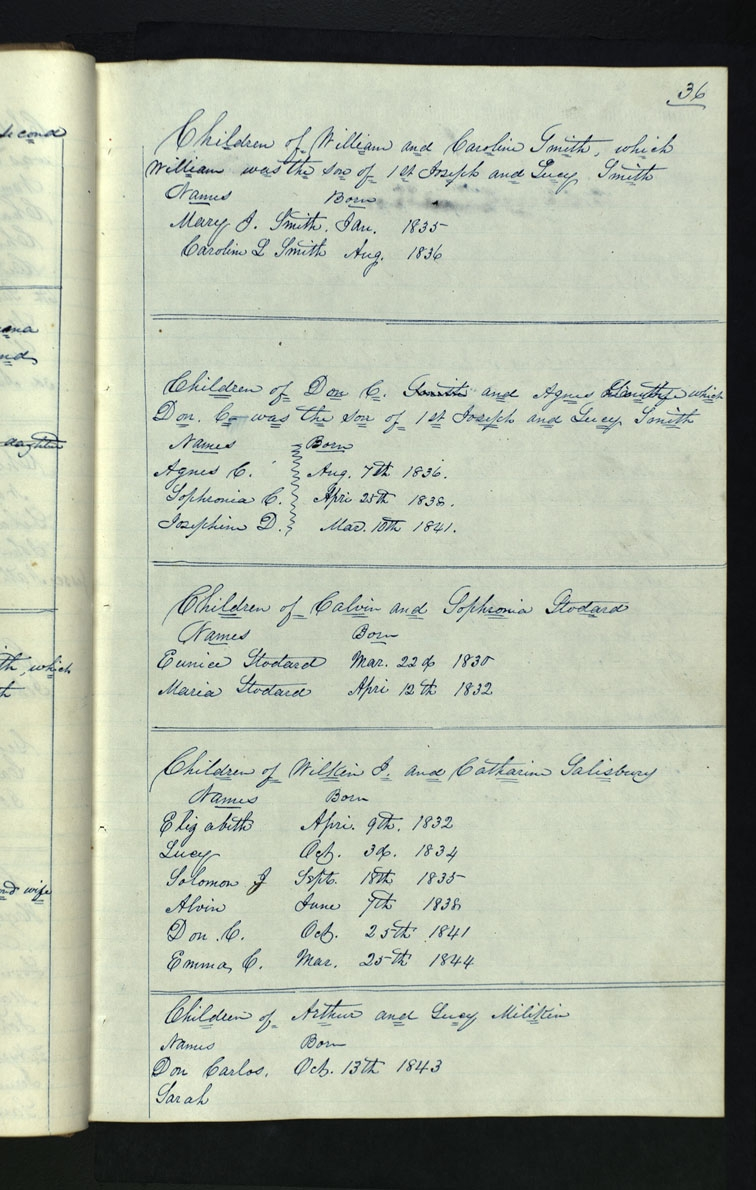 36
second
Children of William and Caroline Smith, which
William was the son of 1st Joseph and Lucy Smith
Names Born
Mary J. Smith. Jan. 1835
Caroline L Smith Aug. 1836
Children of Don C. Smith and Agnes which
Don. C. was the son of 1st Joseph and Lucy Smith
Names Born
Agnes C. Aug. 7th 1836.
Sophronia C. Apri 25th 1838.
Josephine D. Mar. 10th 1841.
daughter
Children of Calvin and Sophronia Stodard
Names Born
Eunice Stodard Mar. 22d 1830
Maria Stodard Apri 12th 1832
which
Children of Wilkin J. and Catharine Salisbury
Names Born
Elizabeth Apri. 9th. 1832
Lucy Oct. 3d. 1834
Solomon J Sept. 18th 1835
Alvin June 7th 1838
Don. C. Oct. 25th 1841
Emma, C. Mar. 25th 1844
wife
Children of Arthur and Lucy Milikin
Names Born
Don Carlos. Oct. 13th 1843
Sarah